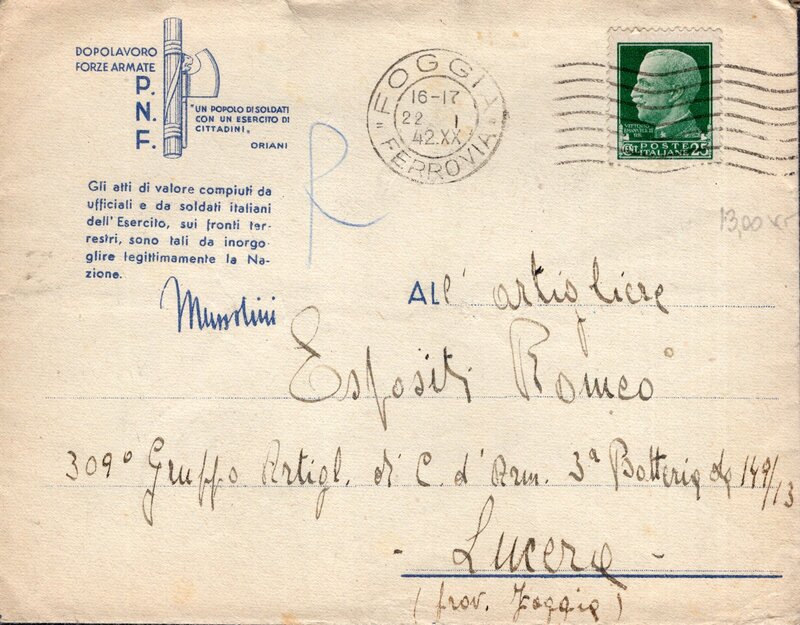 DOPOLAVORO
FORZE ARMATE
P.
N.
F.
"UN POPOLO DI SOLDATI
CON UN ESERCITO DI
CITTADINI„
ORIANI
Gli atti di valore compiuti da
ufficiali e da soldati italiani
dell'Esercito, sui fronti ter-
restri, sono tali da inorgo-
glire legittimamente la Na-
zione.
Mussolini
R
FOGGIA
16-17
22 I
42.XX
"FERROVIA"
VITTORIO
EMANUELE III
RE
CENT. POSTE 25
ITALIANE
13,00
All' artigliere
Espositi Romeo
309° Gruppo Artigl. di C. d'Arm. 3ª Batteria da 149/13
- Lucera -
(prov. Foggia)